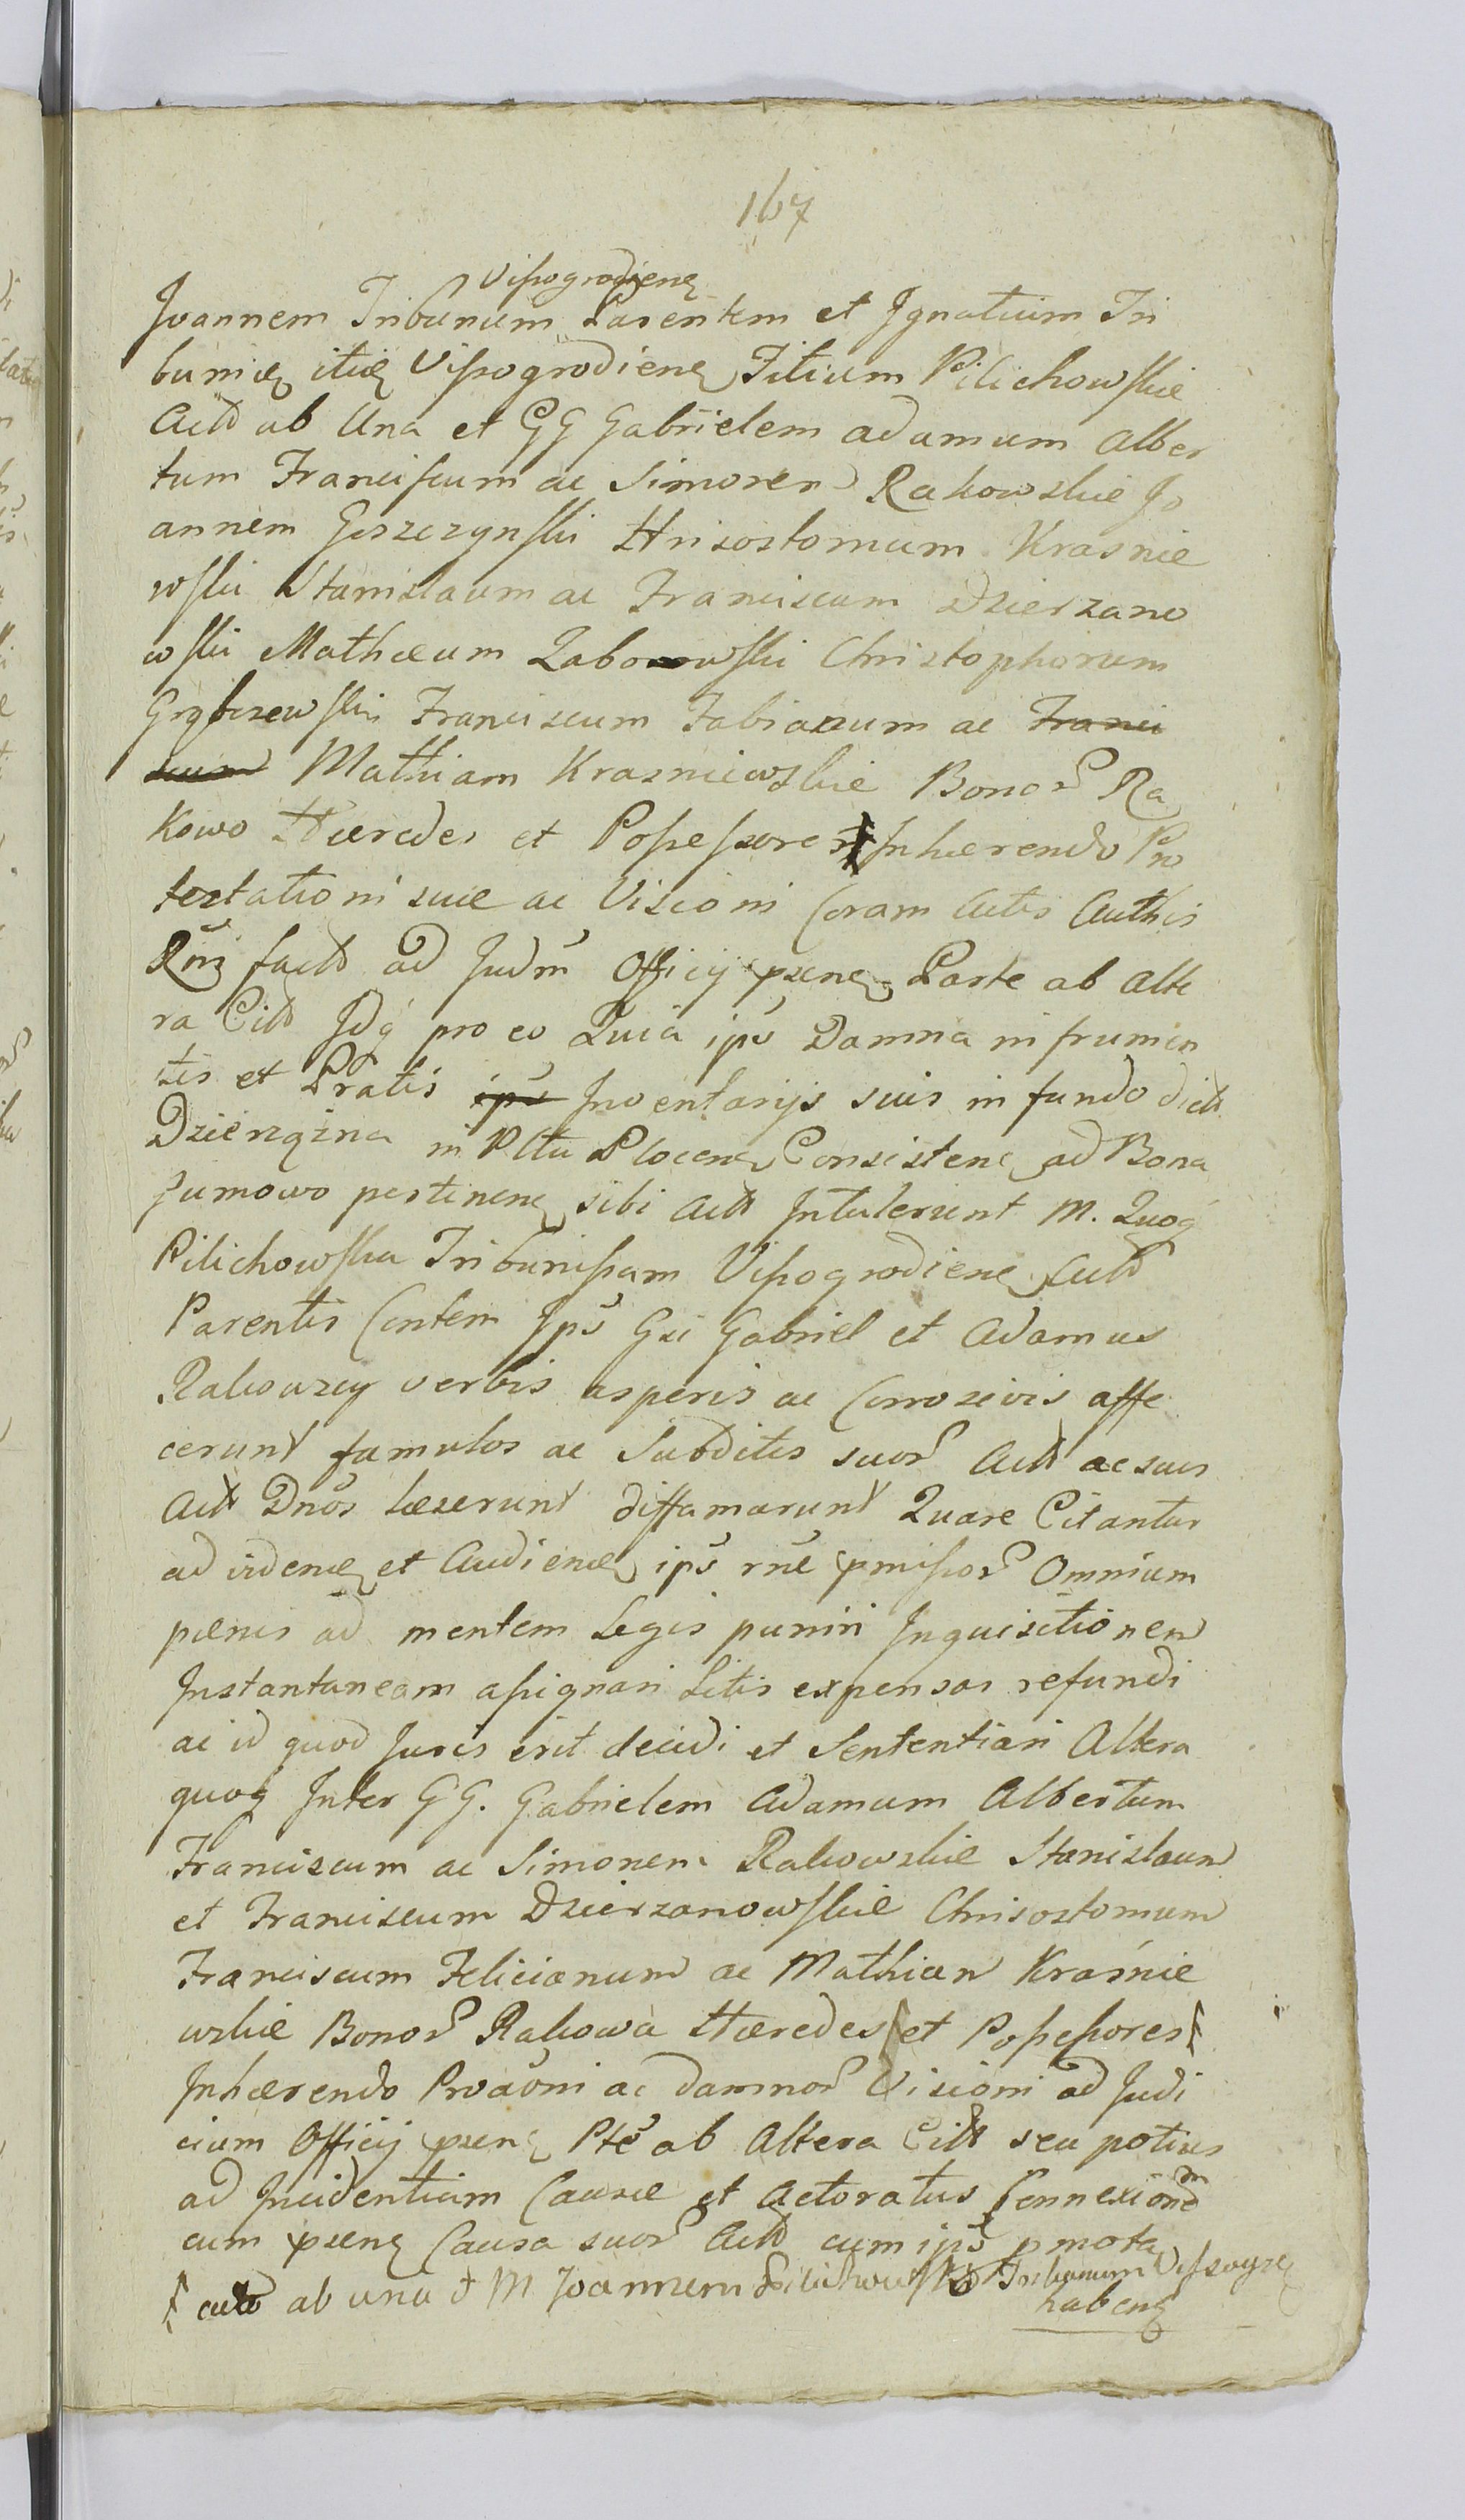 167
Vissogrodienę
Joannem Tribunum Parentem et Ignatium Tri
bunidę itidę Vissogrodienę Filium Pilichowskie
Actt ab Una et GG Gabrielem Adamum Alber
tum Franciscum ac Simonem Rakowskie Jo
annem Goszczynski Hrisostomum Krasnie
wski Stanislaum ac Franciscum Dzierzano
wski Mathæum Zaborowski Christophorum
Grąbczewski Franciscum Fabianum ac Franci
scum Mathiam Krasniewskie Bonor Ra
kowo Hæredes et Possessores Inhærendo Pro
testationi suæ ac Visioni Coram Actis Authis
factt ad Judm Officij pxenę Parte ab Alte
ra Citt Idq pro eo Quia ipsi Damna in frumen
tis et Pratis ipsi Inventarijs suis in fundo dict
Dzierzązna in Pltu Plocenę Consistenę ad Bona
Jumowo pertinenę sibi Actt Intulerunt M. Quoq
Pilichowska Tribunissam Vissogrodienę Actt
Parentis Contem Ipsi Gsi Gabriel et Adamus
Rakowscy verbis asperis ac Corrosivis affe
cerunt famulos ac Subditos suor Actt ac suos
Actt Dnos læserunt diffamarunt Quare Citantur
ad videndę et Audiendę ipsi rne pmissor Omnium
pænis ad mentem Legis puniri Inquisitionem
Instantaneam assignari Litis expensas refundi
ac id quod Juris erit decidi et Sententiari Altera
quoq Inter GG. Gabrielem Adamum Albertum
Franciscum ac Simonem Rakowskie Stanislaum
et Franciscum Dzierzanowskie Chrisostomum
Franciscum Felicianum ac Mathiam Kraśnie
wskie Bonor Rakowa Hæredes et Possessores
Inhærendo Proaoni ac damnor Visioni ad Judi
cium Officij pxenę Pte ab Altera Citt seu potius
ad Incidentiam Causæ et Actoratus Connexionem
cum pxenę Causa suor Actt cum ipsis pmota
actt ab una et M Joannem Pilichowski Tribunum Vissogrę
habenę